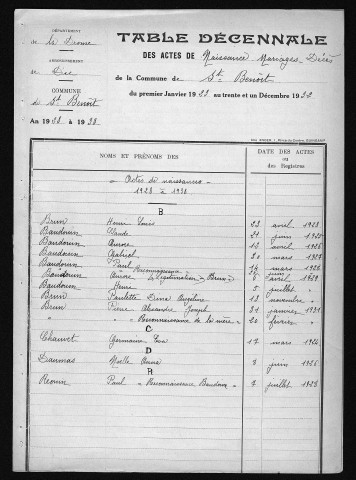 DÉPARTEMENT
de la Drôme
ARRONDISSEMENT
de Die
COMMUNE
de St Benoît
An 1928 à 1938
TABLE DÉCENNALE
DES ACTES DE Naissance Mariages Décès
de la Commune de St Benoît
du premier Janvier 19 au trente et un Décembre 19
NOMS ET PRÉNOMS DES
DATE DES ACTES
ou
des Registres
Actes de naissances
1928 à 1938
B
Brun Henri Louis 22 avril 1928
Baudouin Claude 21 juin
Baudouin Aurore avril
Baudouin Gabriel 20 mars
Baudouin Paul 14 mars 1926
" Reconnaissance
Baudouin Aurore (Légitimation Brun) avril
Baudouin 5 juillet "
Brun Paulette novembre "
Brun Pierre Alexandre Joseph 21 janvier 1931
" Reconnaissance de la mère " 20 février "
C
Chauvet Germaine 17 mars
D
Daumas Noëlle juin
R
Paul " Reconnaissance Baudouin " 7 juillet